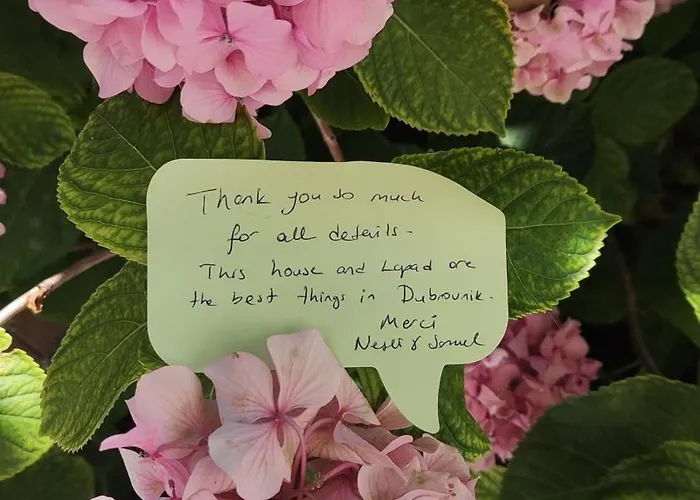 Thank you so much
for all details.
This house and Lapad are
the best things in Dubrovnik.
Merci
&